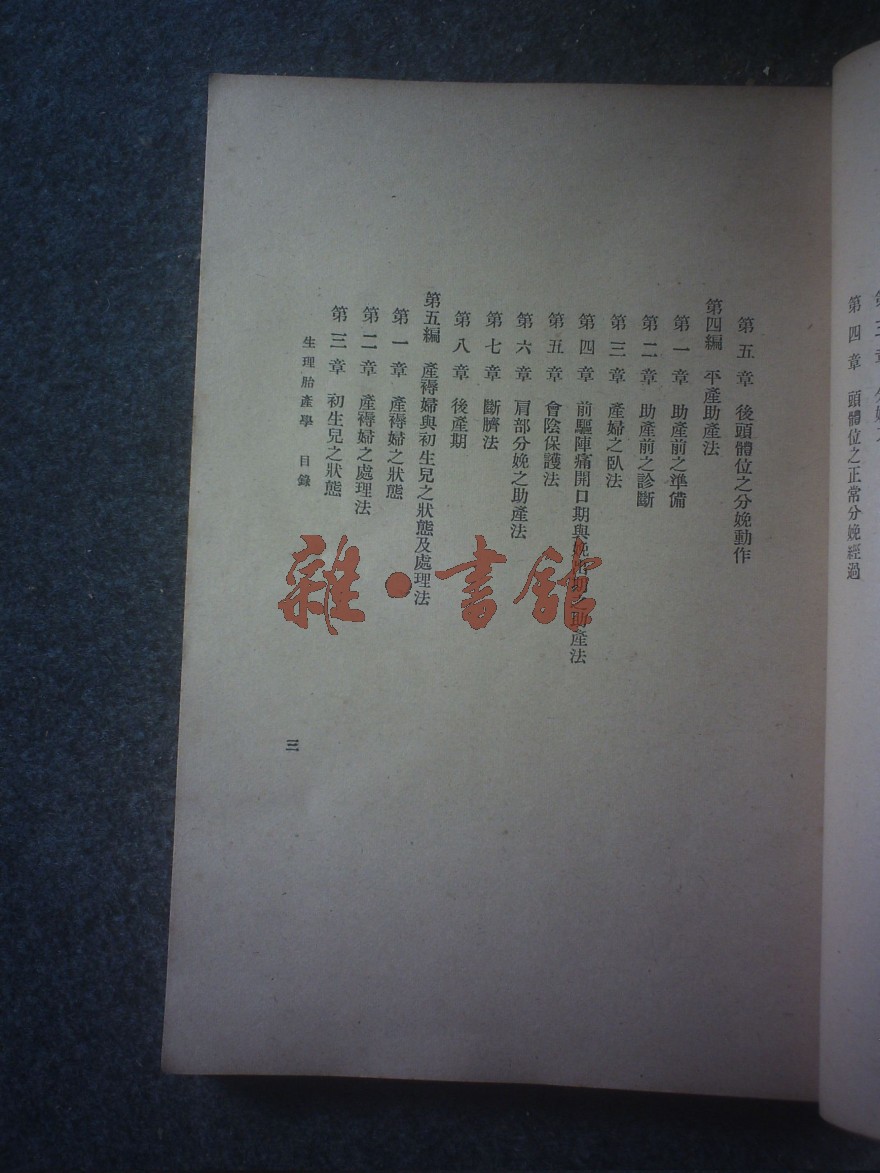 第四章 頭體位之正常分娩經過
第五章 後頭體位之分娩動作
第四編 平產助產法
第一章 助產前之準備
第二章 助產前之診斷
第三章 產婦之臥法
第四章 前驅陣痛開口期與娩出期之助產法
第五章 會陰保護法
第六章 肩部分娩之助產法
第七章 斷臍法
第八章 後產期
第五編 產褥婦與初生兒之狀態及處理法
第一章 產褥婦之狀態
第二章 產褥婦之處理法
第三章 初生兒之狀態
生理胎產學 目錄
三
雜·書館